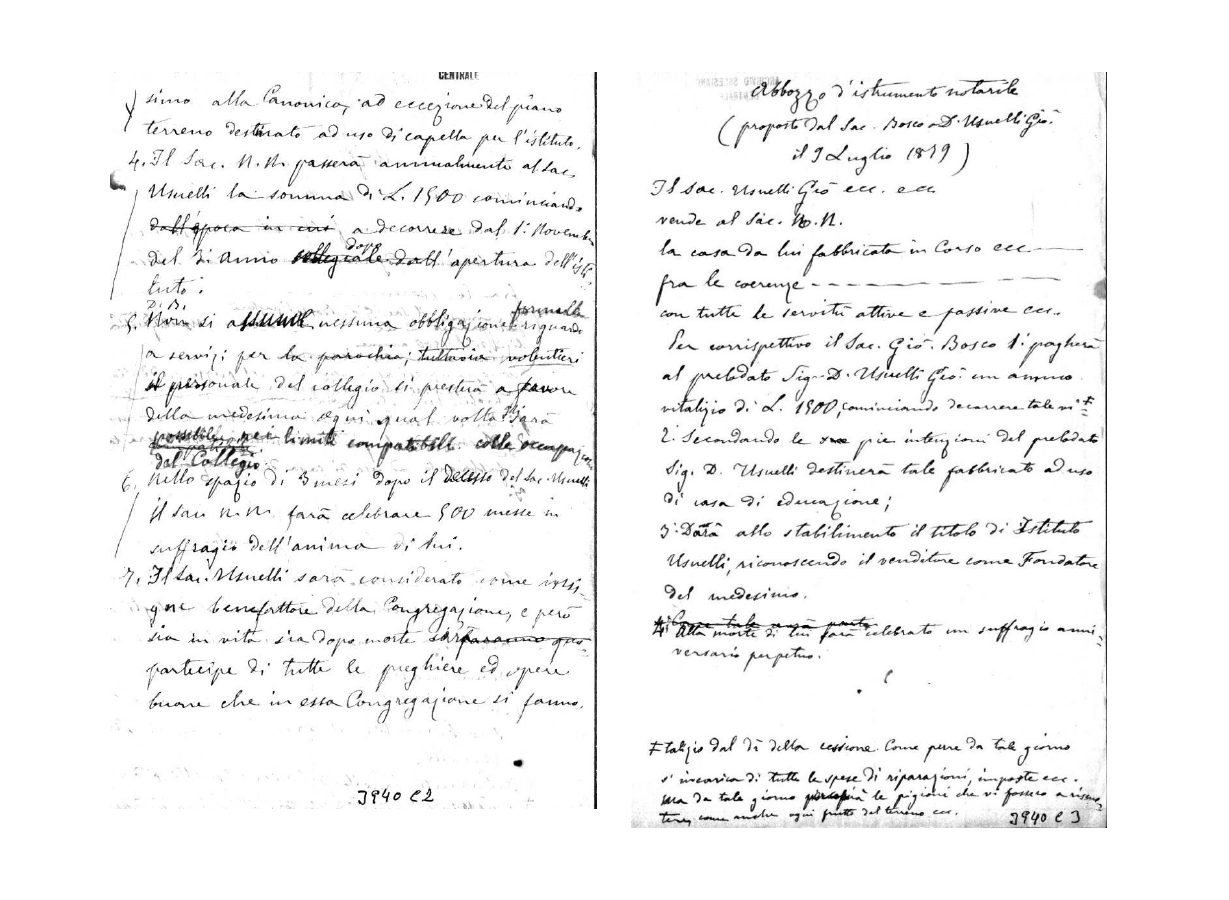 CENTRALE
simo alla Canonica, ad eccezione del piano
terreno destinato ad uso di capella per l'istituto.
4. Il Sac. N.N. passerà annualmente al Sac.
Usuelli la somma di L. 1500 cominciando
dall'epoca in cui a decorrere dal 1° Novembre
del 3° anno collegiale dopo dall'apertura dell'isti
tuto.
D. B.
5. Non si assume nessuna obbligazione formale riguardo
a servizi per la parochia; tuttavia volentieri
il personale del collegio si presterà a favore
della medesima ogni qual volta sarà
possibile nei limiti compatibili colle occupazioni
dal Collegio.
6. Nello spazio di 3 mesi dopo il decesso del Sac. Usuelli
il Sac. N.N. farà celebrare 500 messe in
suffragio dell'anima di lui.
7. Il Sac. Usuelli sarà considerato come insi-
gne benefattore della Congregazione, e però
sia in vita sia dopo morte
partecipe di tutte le preghiere ed opere
buone che in essa Congregazione si fanno.
3940 C2
ARCHIVIO SALESIANO
CENTRALE
Abbozzo d'istrumento notarile
(proposto dal Sac. Bosco a D. Usuelli Gio.
il 9 Luglio 1879)
Il Sac. Usuelli Gio ecc. ecc
vende al Sac. N.N.
la casa da lui fabbricata in Corso ecc
fra le coerenze
con tutte le servitù attive e passive ecc.
Per corrispettivo il Sac. Gio. Bosco 1° pagherà
al prelodato Sig. D. Usuelli Gio un annuo
vitalizio di L. 1500, cominciando decorrere tale vi
2° Secondando le pie intenzioni del prelodato
Sig. D. Usuelli destinerà tale fabbricato ad uso
di casa di educazione;
3° Darà allo stabilimento il titolo di Istituto
Usuelli, riconoscendo il venditore come Fondatore
del medesimo.
4° Come tale avrà parte
4° Alla morte di lui farà celebrato un suffragio anni-
versario perpetuo.
talizio dal dì della cessione. Come pure da tale giorno
s'incarica di tutte le spese di riparazioni, imposte ecc.
ma da tale giorno percepirà le pigioni che vi fossero a riscuo-
tere, come anche ogni frutto del terreno ecc.
3940 C3